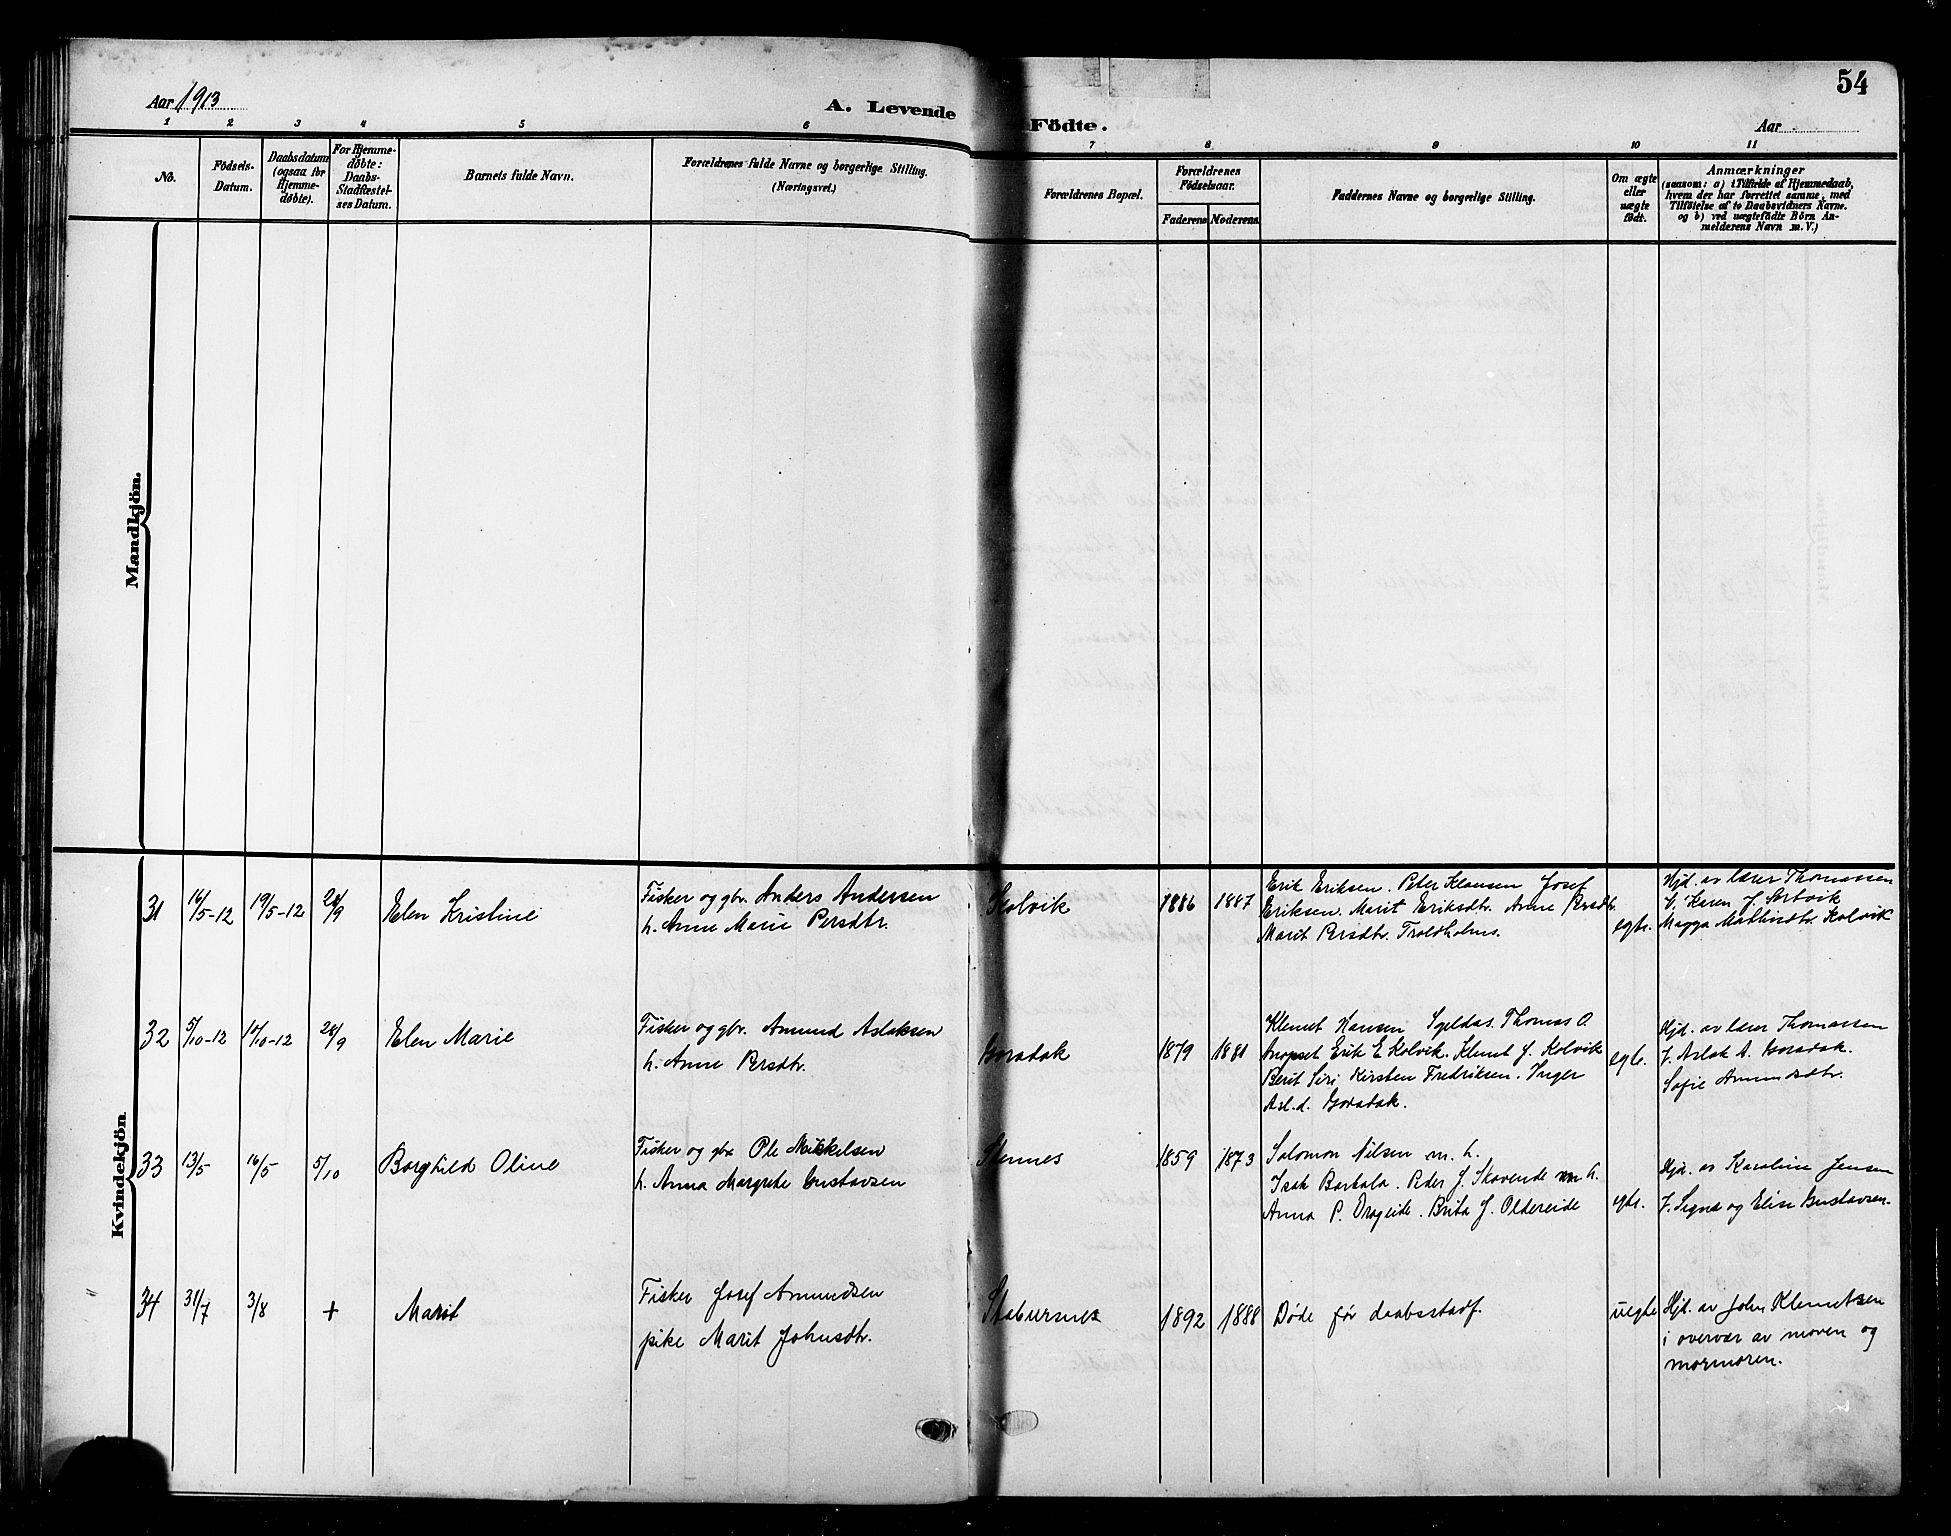 Aar 1913
A. Levende
Födte.
Aar
54
1 2 3 4 5 6 7 8 9 10 11
No.
Födsels-
Datum.
Daabsdatum
(ogsaa for
Hjemme-
døbte).
For Hjemme-
døbte:
Daabs-
Stadfæstel-
ses Datum.
Barnets fulde Navn.
Forældrenes fulde Navne og borgerlige Stilling.
(Næringsvei.)
Forældrenes Bopæl.
Forældrenes
Födselsaar.
Faderens
Moderens
Faddernes Navne og borgerlige Stilling.
Om ægte
eller
uægte
født.
Anmærkninger
(saasom: a) i Tilfælde af Hjemmedaab,
hvem der har forrettet samme, med
Tilföielse af to Daabsvidners Navne.
og b) ved uægtefödte Börn An-
melderens Navn m. V.)
Mandkjön.
Kvindekjön
31 14/5-12 19/5-12 28/9 Elen Kristine
Fisker og gbr. Anders Andersen
h. Anne Marie Persdtr.
Kolvik 1886 1887
Erik Eriksen. Peter Klausen Josef
Eriksen. Marit Eriksdtr. Anne Persdtr.
Marit Persdtr. Troldholms.
egte.
Hjd. av lærer Thomassen
V. Karen J.
Magga Mathisdtr. Kolvik
32 5/10-12 10/10-12 28/9 Elen Marie
Fisker og gbr. Amund Aslaksen
h. Anne Persdtr.
Goradak 1879 1881
Klemet Hansen Igeldas. Thomas O.
Anopset Erik E Kolvik. Klemet J. Kolvik
Berit Siri Kirsten Fredriksen. Inger
Asl.d. Goradak.
egte.
Hjd. av lærer Thomassen
V. Aslak A. Goradak.
Sofie Amundsdtr.
33 13/5 16/5 5/10 Borghild Oline
Fisker og gbr Ole Mikkelsen
h. Anna Margrete Gustavsen
Stennes 1859 1873
Salomon Nilsen m. h.
Isak Barkala. Peder J. Skovende m h.
Anna P. Oxgeide. Brita J. Oldereide
egte.
Hjd. av Karoline Jensen
V. Signe og Elise Gustavsen.
34 31/7 3/8 + Marit
Fisker Josef Amundsen
pike Marit Johnsdtr.
Stabursnes 1892 1888
Døde før daabsstadf.
uegte
Hjd. av John Klemetsen
i overvær av moren og
mormoren.